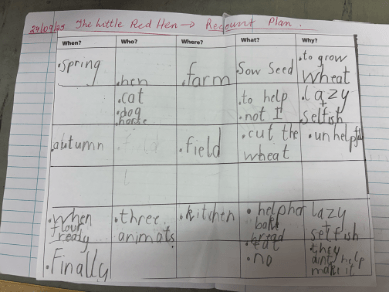 The Little Red Hen → Recount Plan.
When? Who? Where? What? Why?
•Spring •hen •farm Sow seed •to grow wheat
•cat
•dog
•to help
•not I
•Lazy
selfish
autumn •field •cut the wheat •unhelpful
•When flour ready •three animals •kitchen •help her bake bread Lazy
selfish
•Finally •eat
•no •they aint help make it